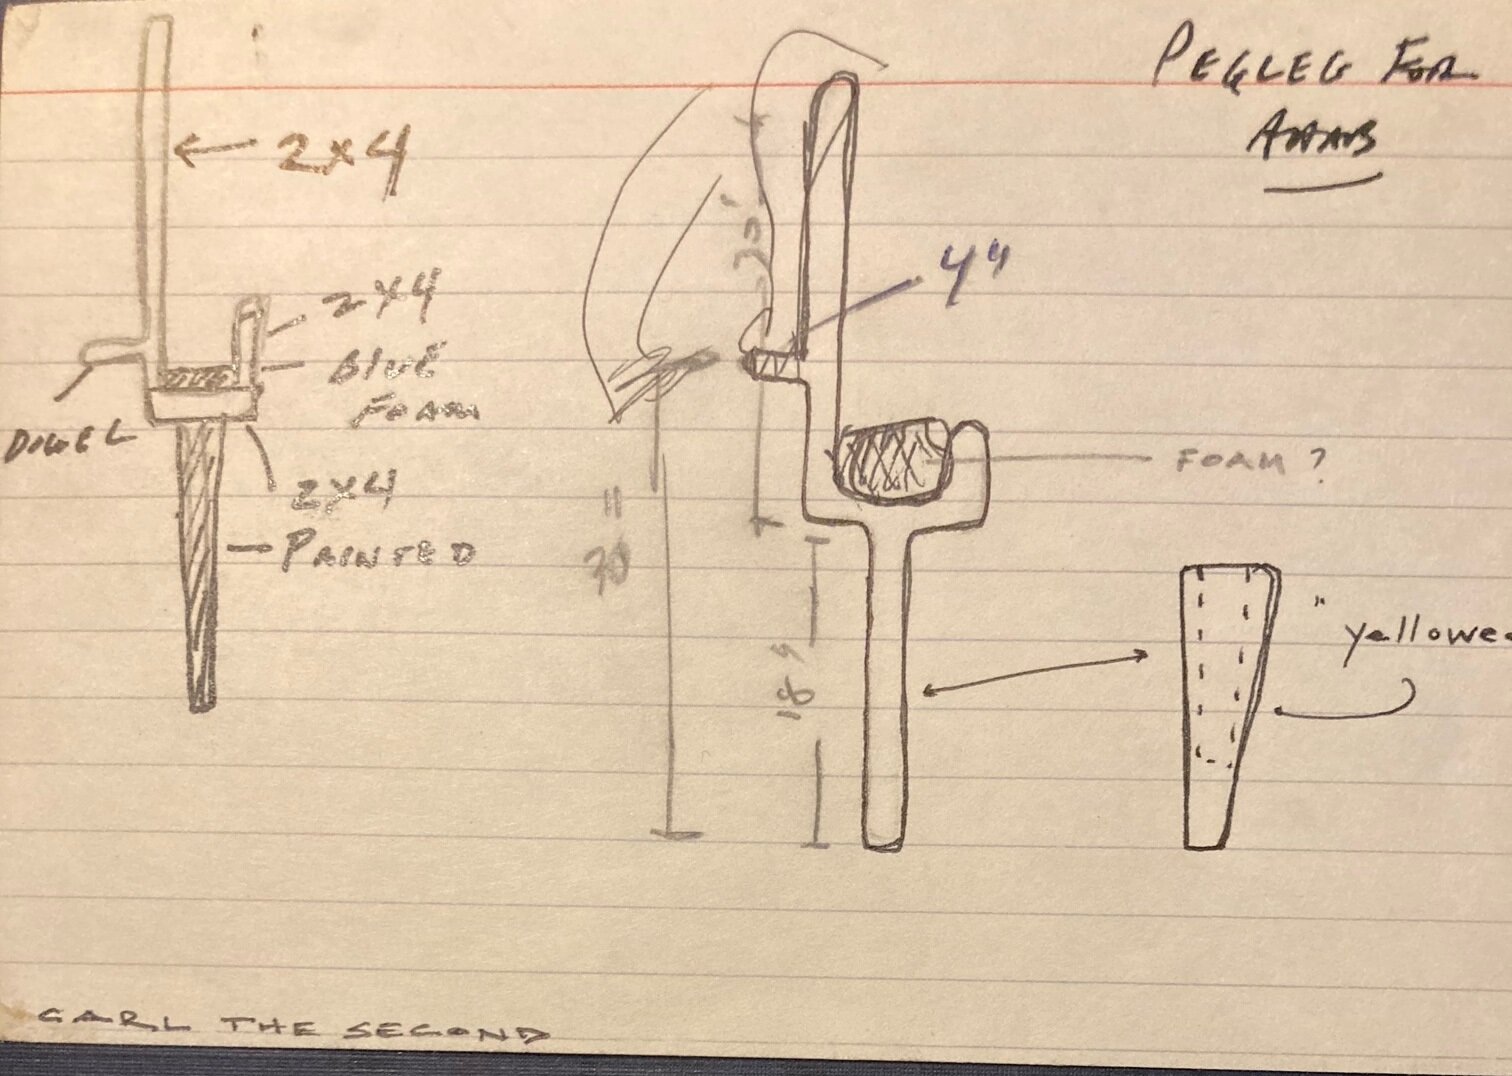 PEGLEG FOR
ADAMS
2x4
2x4
BLUE
FOAM
DOWEL
2x4
PAINTED
4"
20"
FOAM ?
30"
18"
" yellowe
CARL THE SECOND